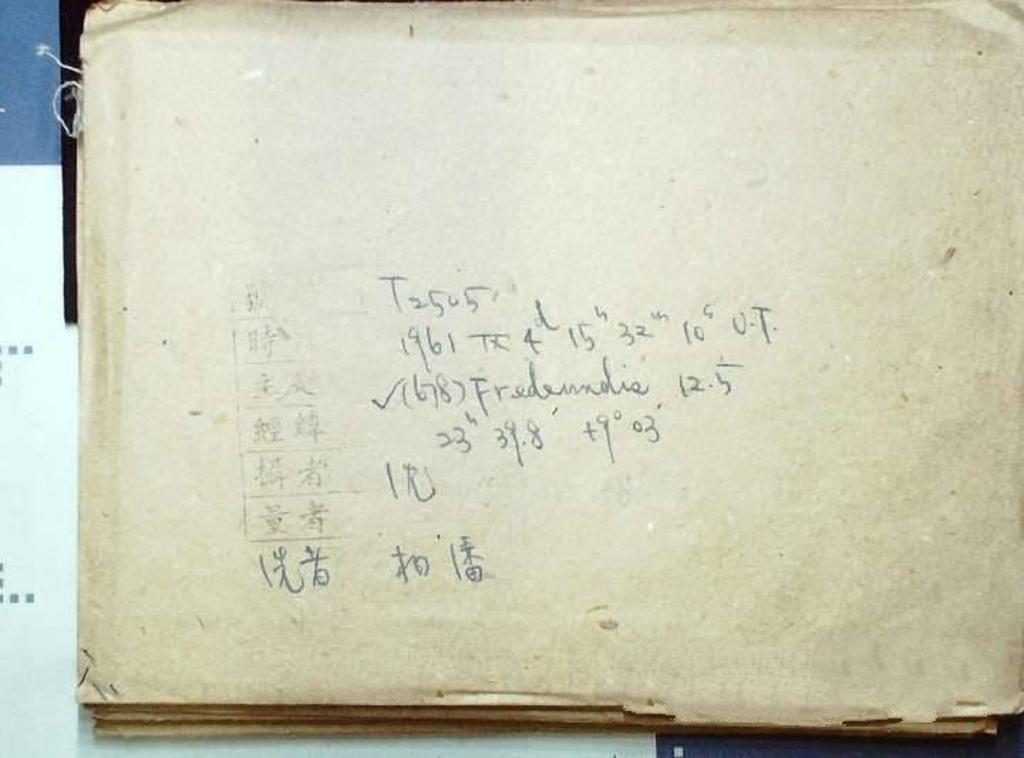 號 T2505
時 1961 IX 4ᵈ 15ʰ 32ᵐ 10ˢ U.T.
✓(678) Fredegundis 12.5
經緯 23ʰ 39.8 +9° 03′
攝者 沈
量者
洗者 柏 潘